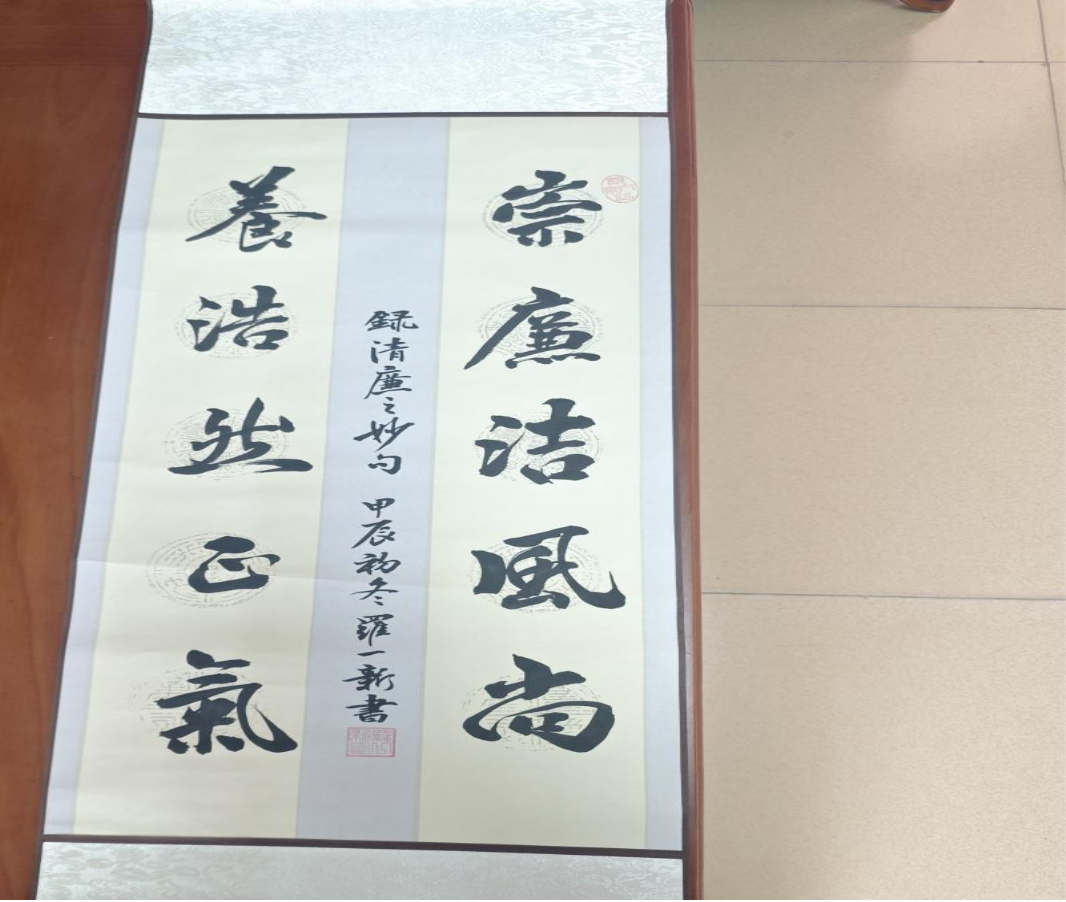 崇廉洁風尚
養浩然正氣
録清廉之妙句 甲辰初冬羅一新書